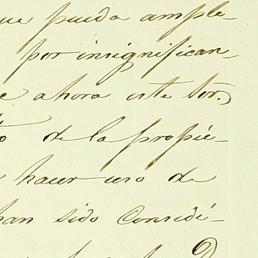 que pueda ample-
por insignifican-
ahora este Sor.
de la propié-
hacer uso de
han sido Considé-